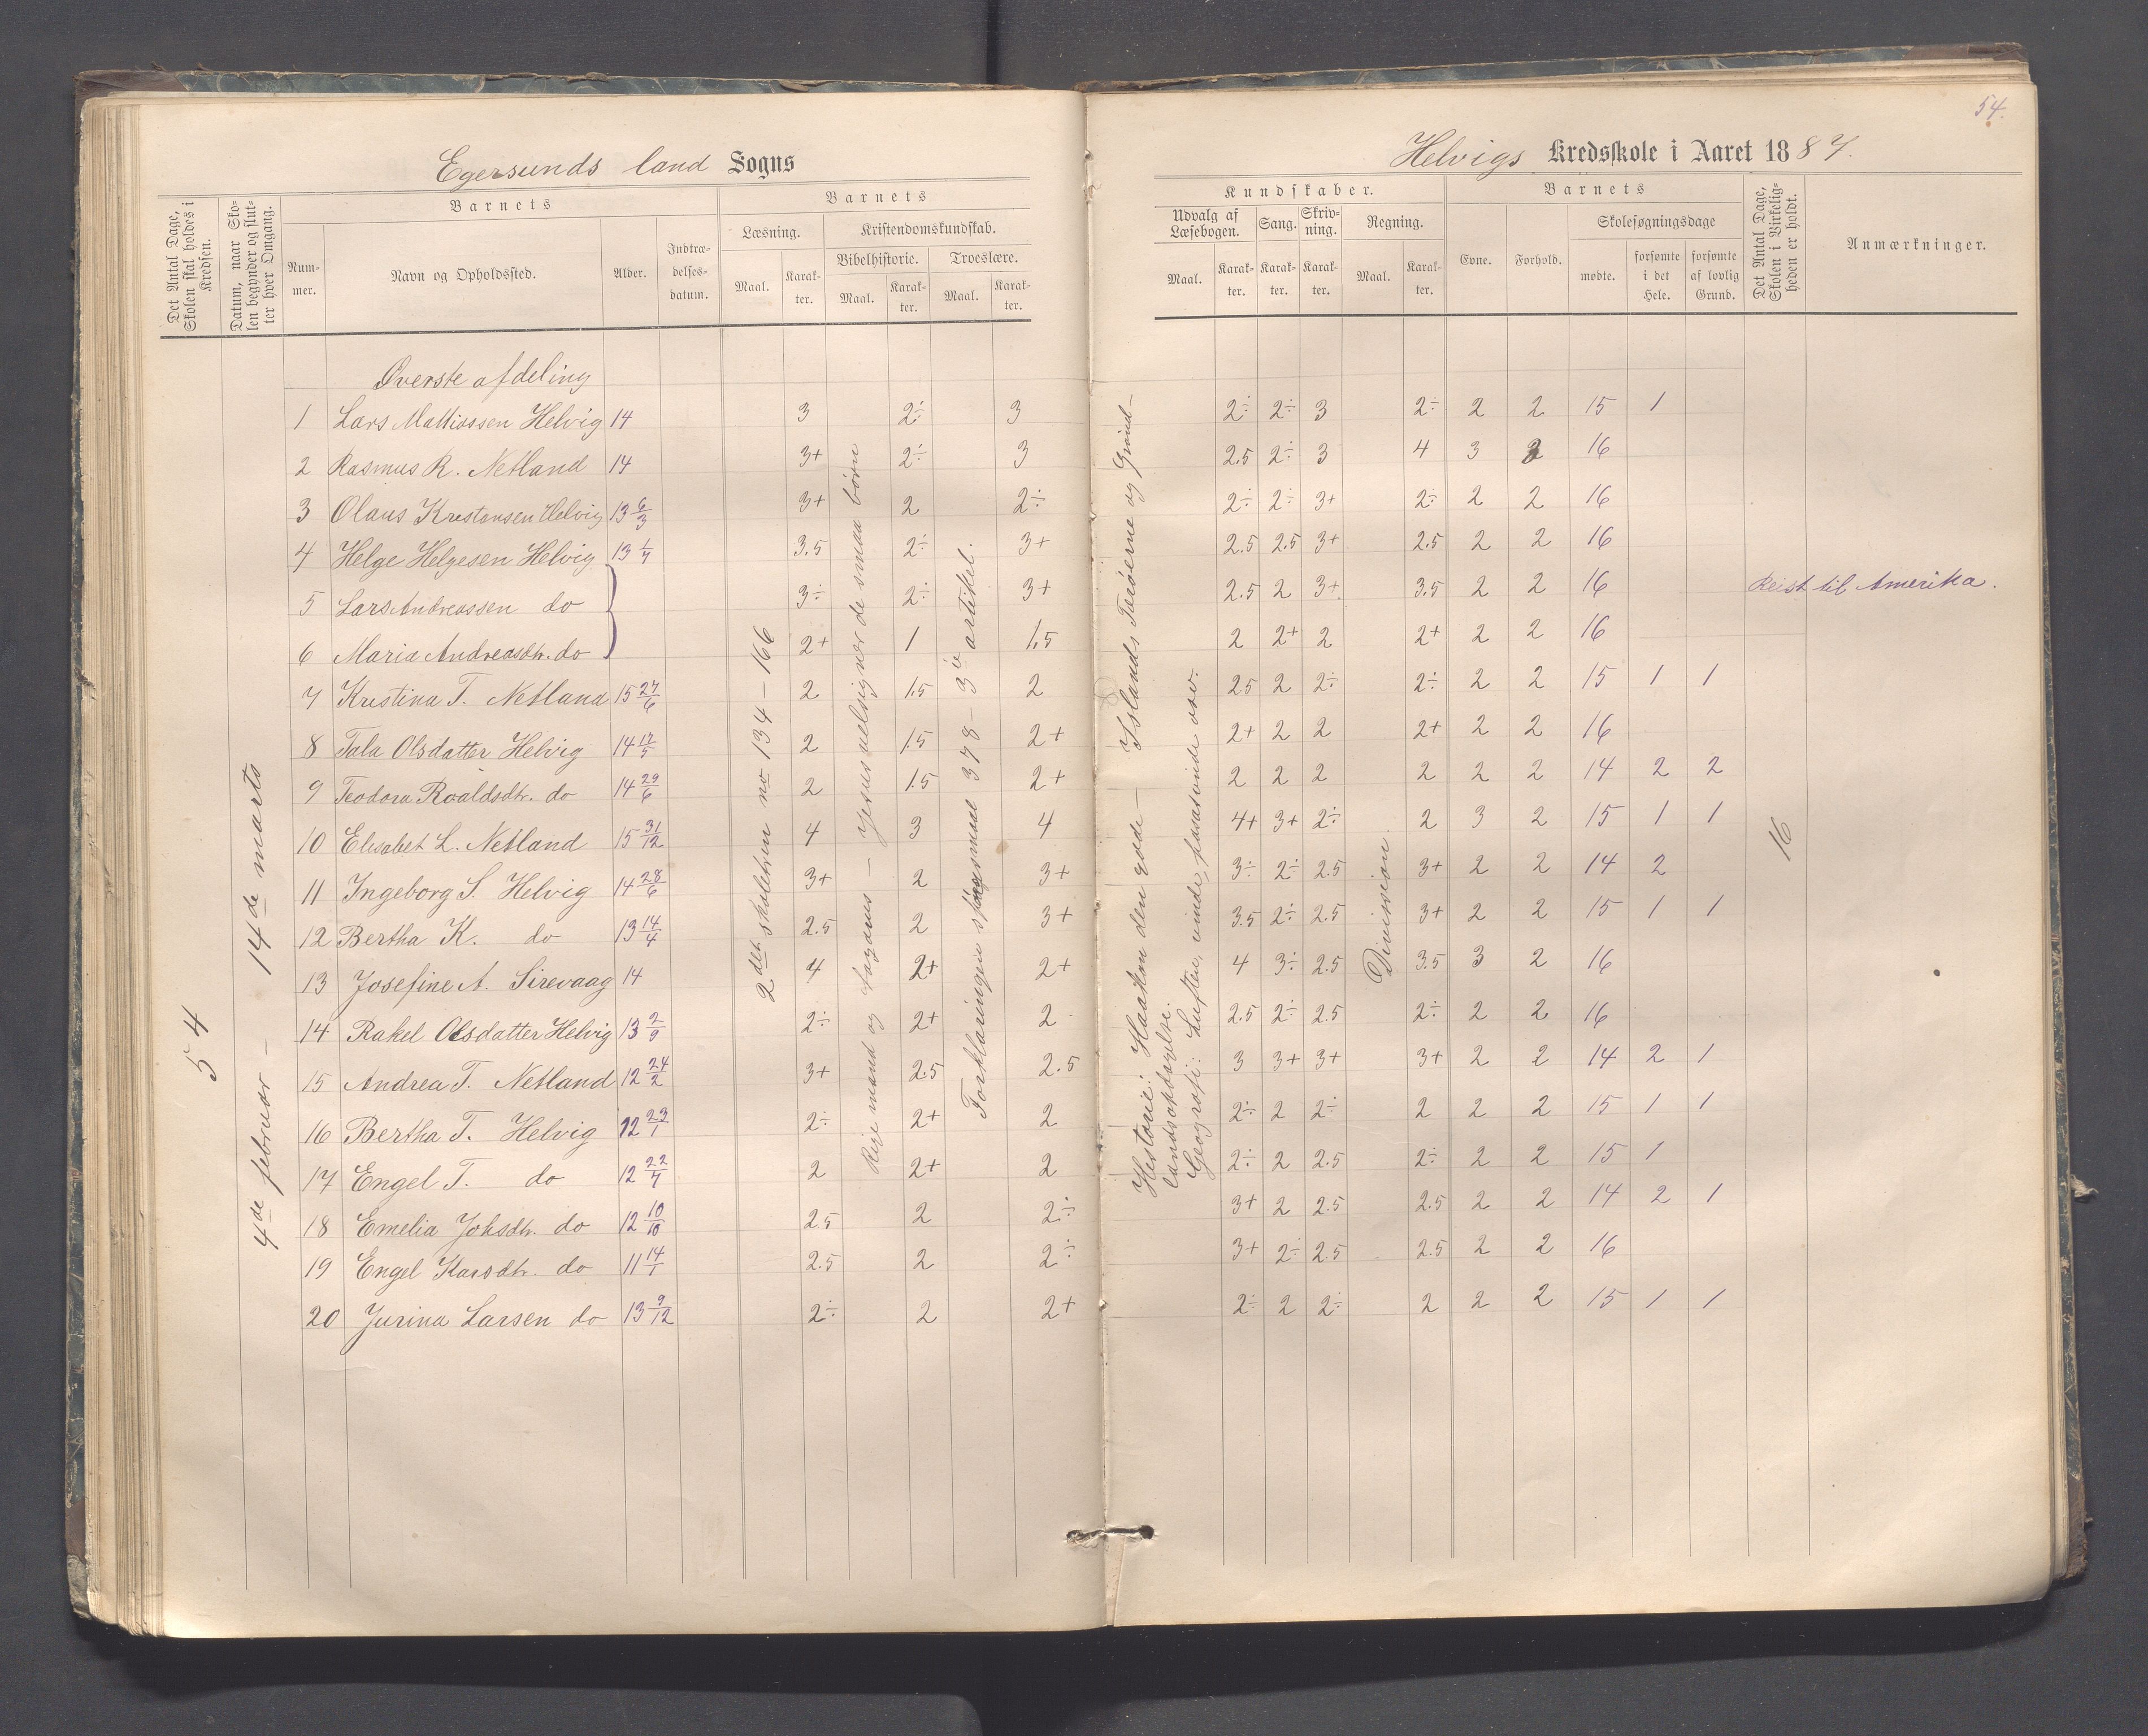 54.
Egersunds land Sogns
Helvigs Kredsskole i Aaret 1887.
Det Antal Dage, Skolen skal holdes i Kredsen.
Datum, naar Skolen begynder og slutter hver Omgang.
Barnets
Nummer.
Navn og Opholdssted.
Alder.
Indtrædelsesdatum.
Barnets
Læsning.
Maal.
Karakter.
Kristendomskundskab.
Bibelhistorie.
Maal.
Karakter.
Troeslære.
Maal.
Karakter.
Kundskaber.
Udvalg af Læsebogen.
Maal.
Karakter.
Sang.
Karakter.
Skrivning.
Karakter.
Regning.
Maal.
Karakter.
Barnets
Evne.
Forhold.
Skolesøgningsdage
mødte.
forsømte i det Hele.
forsømte af lovlig Grund.
Det Antal Dage, Skolen i Virkeligheden er holdt.
Anmærkninger.
54
4de februar - 14de marts
Øverste afdeling
1 Lars Mattiassen Helvig 14 3 2÷ 3 2÷ 2÷ 3 2÷ 2 2 15 1
2 Rasmus R. Netland 14 3+ 2÷ 3 2.5 2÷ 3 4 3 2 16
3 Olaus Kristensen Helvig 13 6/3 3+ 2 2÷ 2÷ 2÷ 3+ 2÷ 2 2 16
4 Helge Helgesen Helvig 13 1/7 3.5 2÷ 3+ 2.5 2.5 3+ 2.5 2 2 16
5 Lars Andreassen do 3÷ 2÷ 3+ 2.5 2 3+ 3.5 2 2 16 Reist til Amerika.
6 Maria Andreasdtr. do 2+ 1 1.5 2 2+ 2 2+ 2 2 16
7 Kristina T. Netland 15 27/6 2 1.5 2 2.5 2 2÷ 2÷ 2 2 15 1 1
8 Tala Olsdatter Helvig 14 17/5 2 1.5 2+ 2+ 2 2 2+ 2 2 16
9 Teodora Roaldsdtr. do 14 29/6 2 1.5 2+ 2 2 2 2 2 2 14 2 2
10 Elisabet L. Netland 15 31/12 4 3 4 4+ 3+ 2÷ 2 3 2 15 1 1
11 Ingeborg S. Helvig 14 28/6 3+ 2 3+ 3÷ 2÷ 2.5 3+ 2 2 14 2
12 Bertha K. do 13 14/4 2.5 2 3+ 3.5 2÷ 2.5 3+ 2 2 15 1 1
13 Josefine A. Sirevaag 14 4 2+ 2+ 4 3÷ 2.5 3.5 3 2 16
14 Rakel Olsdatter Helvig 13 2/9 2÷ 2+ 2 2.5 2÷ 2.5 2÷ 2 2 16
15 Andrea T. Netland 12 24/2 3+ 2.5 2.5 3 3+ 3+ 3+ 2 2 14 2 1
16 Bertha T. Helvig 12 23/1 2÷ 2+ 2 2÷ 2 2÷ 2 2 2 15 1 1
17 Engel T. do 12 22/7 2 2+ 2 2÷ 2 2.5 2÷ 2 2 15 1
18 Emelia Johsdtr. do 12 10/10 2.5 2 2÷ 3+ 2 2.5 2.5 2 2 14 2 1
19 Engel Larsdtr. do 11 14/1 2.5 2 2÷ 3+ 2÷ 2.5 2.5 2 2 16
20 Jurina Larsen do 13 9/12 2÷ 2 2+ 2÷ 2 2÷ 2 2 2 15 1 1
2det skoletrin no 134 - 166
Rige mand og Lazarus - Jesus velsigner de smaa børn
Forklaringen spørgsmaal 378 - 3ie artikel.
Historie: Haakon den gode - Islands Færøerne og Grønlands opdagelse.
Geografi: Luften, vinde, passatvinde osv.
Division.
16